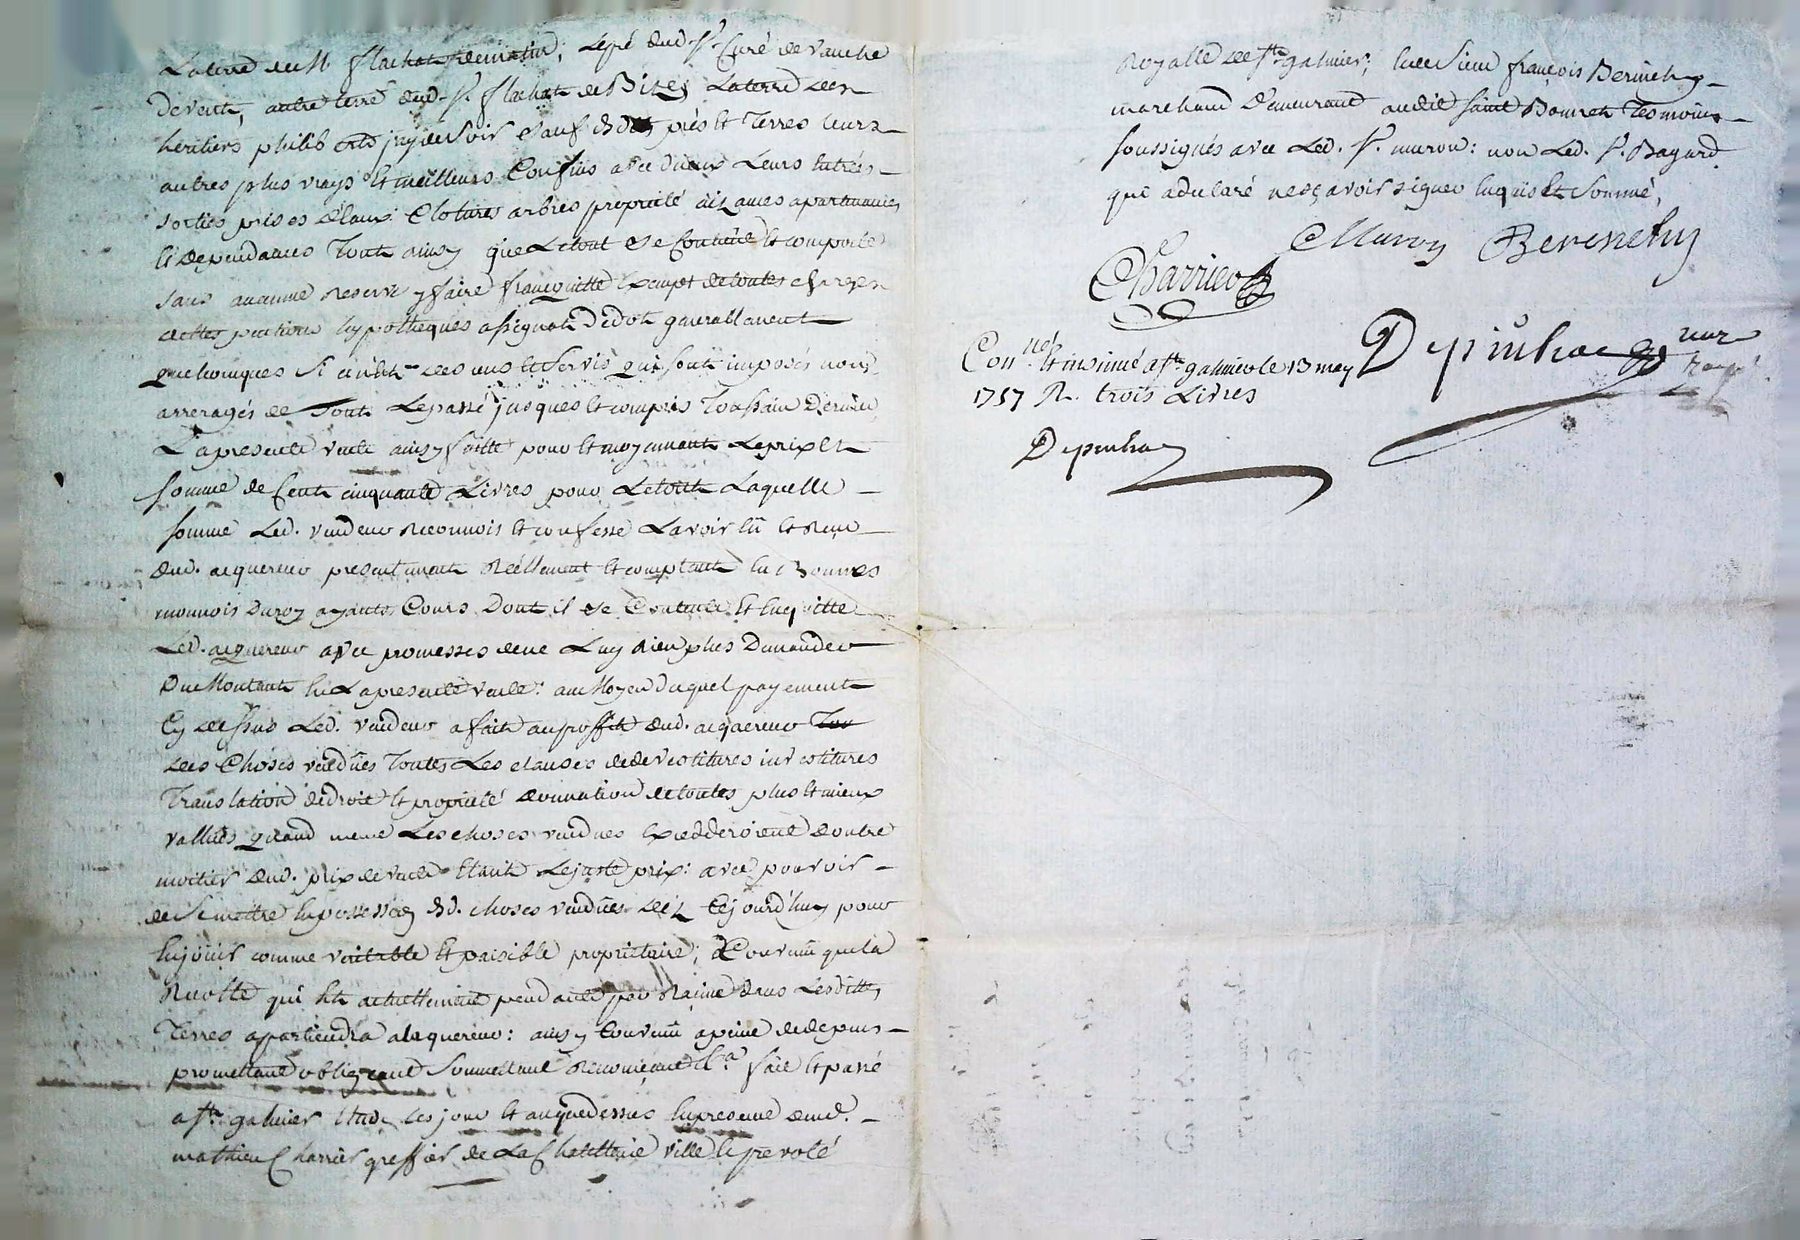 La terre de M flachat demissin; le pré dud. Sr. Curé de vauche
de vent, autre terre dud. Sr. flachat de Bizey La terre des
héritiers philib de soir sauf desd. prés et Terres leurs
autres plus vrays et meilleurs Confins avec diceux Leurs entrées
sorties prises d'eaux Clotures arbres proprieté aizances apartenances
et dependances Tout ainsy que Letout se Contient et comporte
sans aucunne Reserve y faire franc quitte Exempt de toutes charges
dettes pentions hypotheques assignat dedot generallement
quelconques Si ce n'est des cens et Servis qui sont imposés non
arreragés de Tout Lepassé jusques et compris Toussain Dernier
La presente vente ainsy faitte pour et moyennant Le prix et
somme de Cent cinquante Livres pour Letout Laquelle
somme Led. vendeur Reconnois et confesse Lavoir Eû et Reçu
dud. acquereur presentement Réellement et comptant En Bonnes
monnois Du roy ayants Cours Dont il se Contente et Enquitte
Led. acquereur avec promesses de ne Luy Rien plus Demander
Du Montant En La presente vente: au Moyen duquel payement
Cy dessus Led. vendeur a fait au proffit dud. acquereur
des Choses vendües Toutes Les clauses de devestitures investitures
Translation de droit et proprieté donnation de toutes plus et mieux
vallües quand meme Les choses vendues Excedderoient d'outre
moitier dud. prix de vente Etant Le juste prix: avec pouvoir
de Se mettre En possession desd. choses vendües des Cejourd'huy pour
En joüir comme veritable et paisible proprietaire; Convenu que la
Recolte qui Est actuellement pendante par Racine dans Lesdittes
Terres apartiendra alaquereur: ainsy Convenu a peine de depens
promettant obligeant Soumettant Renonçeant Ea fait et passé
a St. galmier Etude Les jour et an que dessus En presence dud.
mathieu Charrier greffier de La Chatellenie ville et prevoté
Royalle de St. galmier; et de Sieur françois Berinchy
marchand demeurant audit Saint Bonnet Tesmoins
soussignés avec Led. Sr. muron: non Led. Sr. Bayard
qui a declaré ne sçavoir signer Enquis et Sommé,
Muron Berenchy
Charrier
Conné. et insinué a St. galmier le 13 may
1757 R. trois Livres
Depinhac
Depinhac